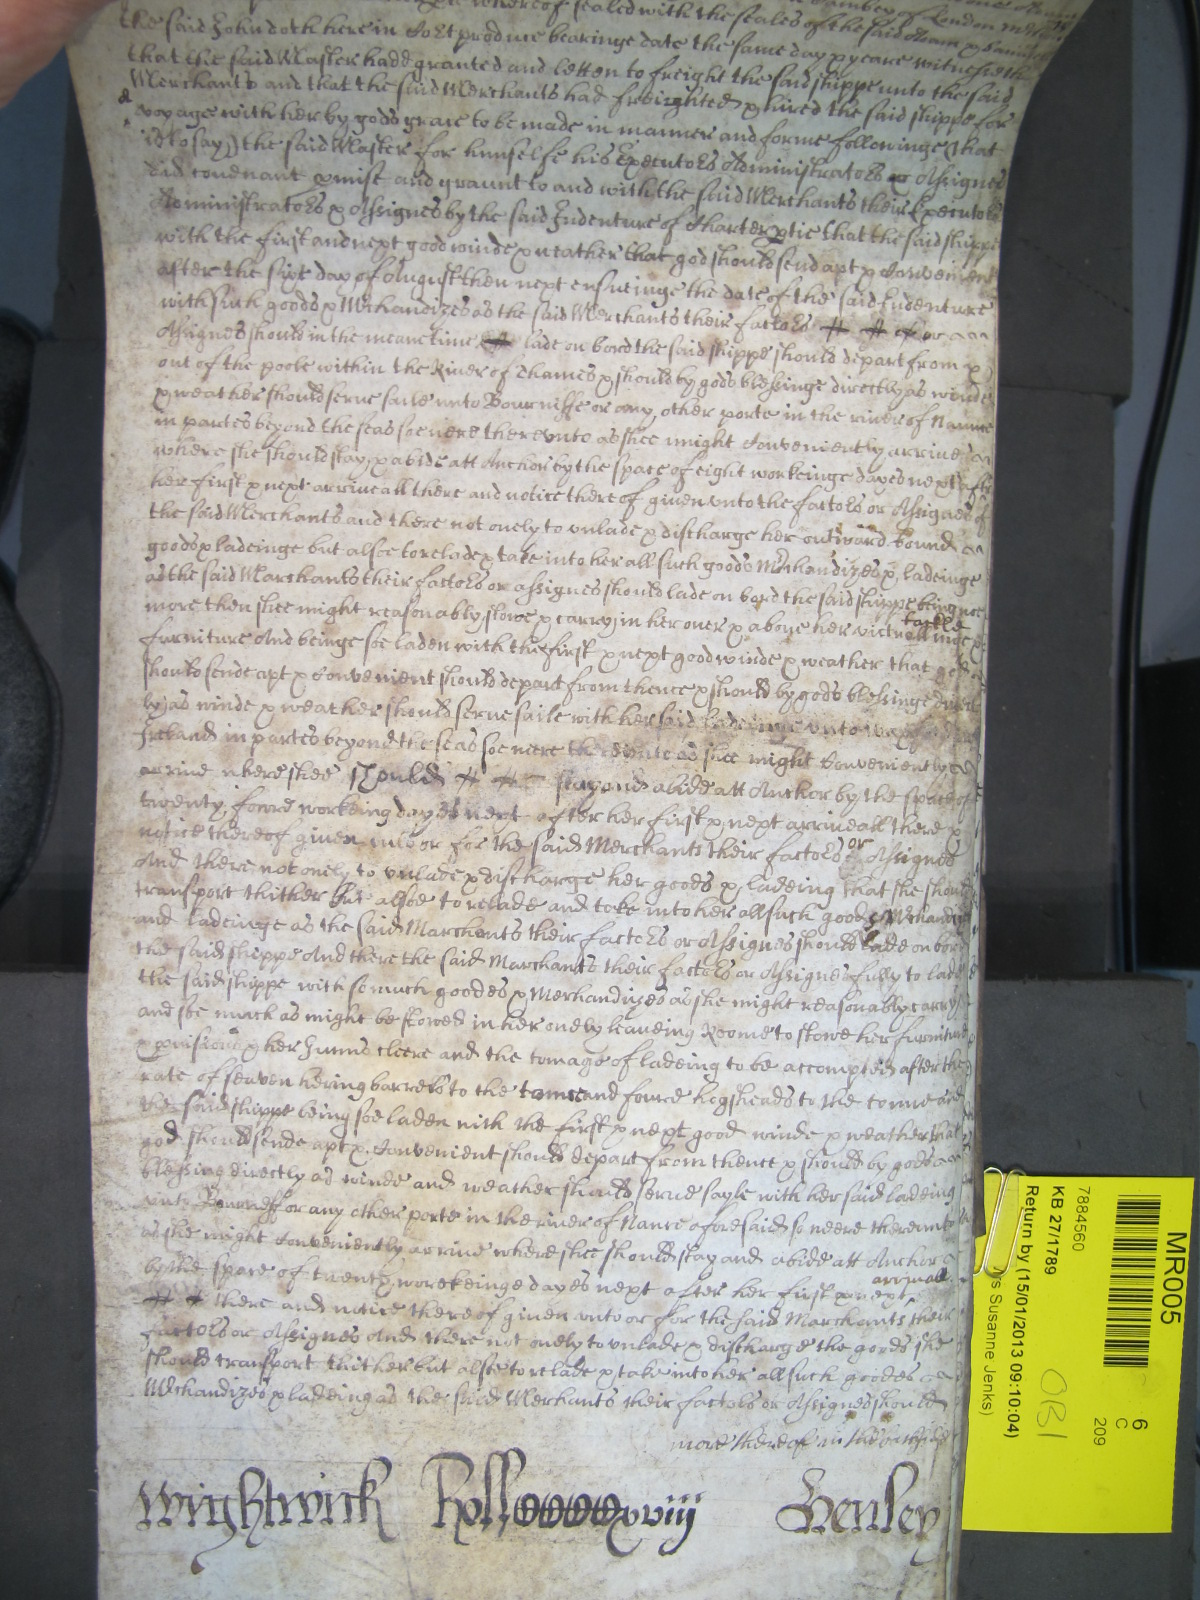 whereof sealed with the seales of the said
the said John doth here in Court produce bearinge date the same day & yeare witnesseth
that the said Master hadd granted and letten to freight the said shippe unto the said
Merchants and that the said Merchants had freighted & hired the said shippe for
voyage with her by gods grace to be made in manner and forme followinge (that
is to say) the said Master for himselfe his Executors Administrators or Assignes
did covenant pmise and graunt to and with the said Merchants their Executors
Administrators & Assignes by the said Indenture of Charter ptie that the said shippe
with the first and next good winde & weather that god should send apt & convenient
after the sixt day of August then next ensueinge the date of the said Indenture
with such goods & Mchandizes as the said Merchants their factors # # or
Assignes should in the meane time # lade on bord the said shippe should depart from &
out of the poole within the River of Thames & should by gods blessinge directly as winde
& weather should serve saile unto Bourniffe or any other porte in the river of Nance
in partes beyond the seas soe neere thereunto as shee might conveniently arrive
where she should stay & abide att Anchor by the space of eight workeinge dayes next after
her first & next arriveall there and notice thereof given unto the factors or Assignes of
the said Merchants and there not onely to unlade & discharge her outward bound
goods & ladeinge but alsoe to relade & take into her all such goods Mchandizes & ladeinge
as the said Marchants their factors or assignes should lade on bord the said shippe being noe
more then shee might reasonably stowe & carry in her over & above her victuallinge tackle &
furniture And beinge soe laden with the first & next good winde & weather that god
should sende apt & convenient should depart from thence & should by gods blessinge direct
ly as winde & weather should serve saile with her said ladeinge unto
Ireland in partes beyond the seas soe neere thereunto as shee might conveniently
arrive where shee should # # stay and abide att Anchor by the space of
twenty foure workeing dayes next after her first & next arriveall there &
notice thereof given unto or for the said Merchants their factors or Assignes
And there not onely to unlade & discharge her goods & ladeing that she should
transport thither but alsoe to relade and take into her all such goods & Mchandizes
and ladeinge as the said Marchants their factors or Assignes should lade on bord
the said shippe And there the said Marchants their factors or Assignes fully to lade
the said shippe with so much goodes & Merhandizes as she might reasonably carry
and soe much as might be stowed in her onely leaveing Roome to stowe her furniture
& pvisions & her Junns cleere and the tonnage of ladeing to be accompted after the
rate of seaven hering barrels to the tonne and foure hogsheads to the tonne and
the said shippe being soe laden with the first & next good winde & weather that
god should sende apt & convenient should depart from thence & should by gods
blessing directly as winde and weather should serve sayle with her said ladeing
unto Bourneff or any other porte in the river of Nance aforesaid so neere thereunto
as she might conveniently arrive where shee should stay and abide att Anchor
by the space of twenty workeinge dayes next after her first & next arriveall
# # there and notice thereof given unto or for the said Marchants their
factors or Assignes And there not onely to unlade & discharge the goods she
should transport thither but alsoe to relade & take into her all such goodes
Mchandizes & ladeing as the said Merchants their factors or Assignes should
more thereof in the
Wightwick Roll CCCCxviij Henley
MR005
6
C
209
7884560
KB 27/1789
Return by (15/01/2013 09:10:04)
s Susanne Jenks)
OBI